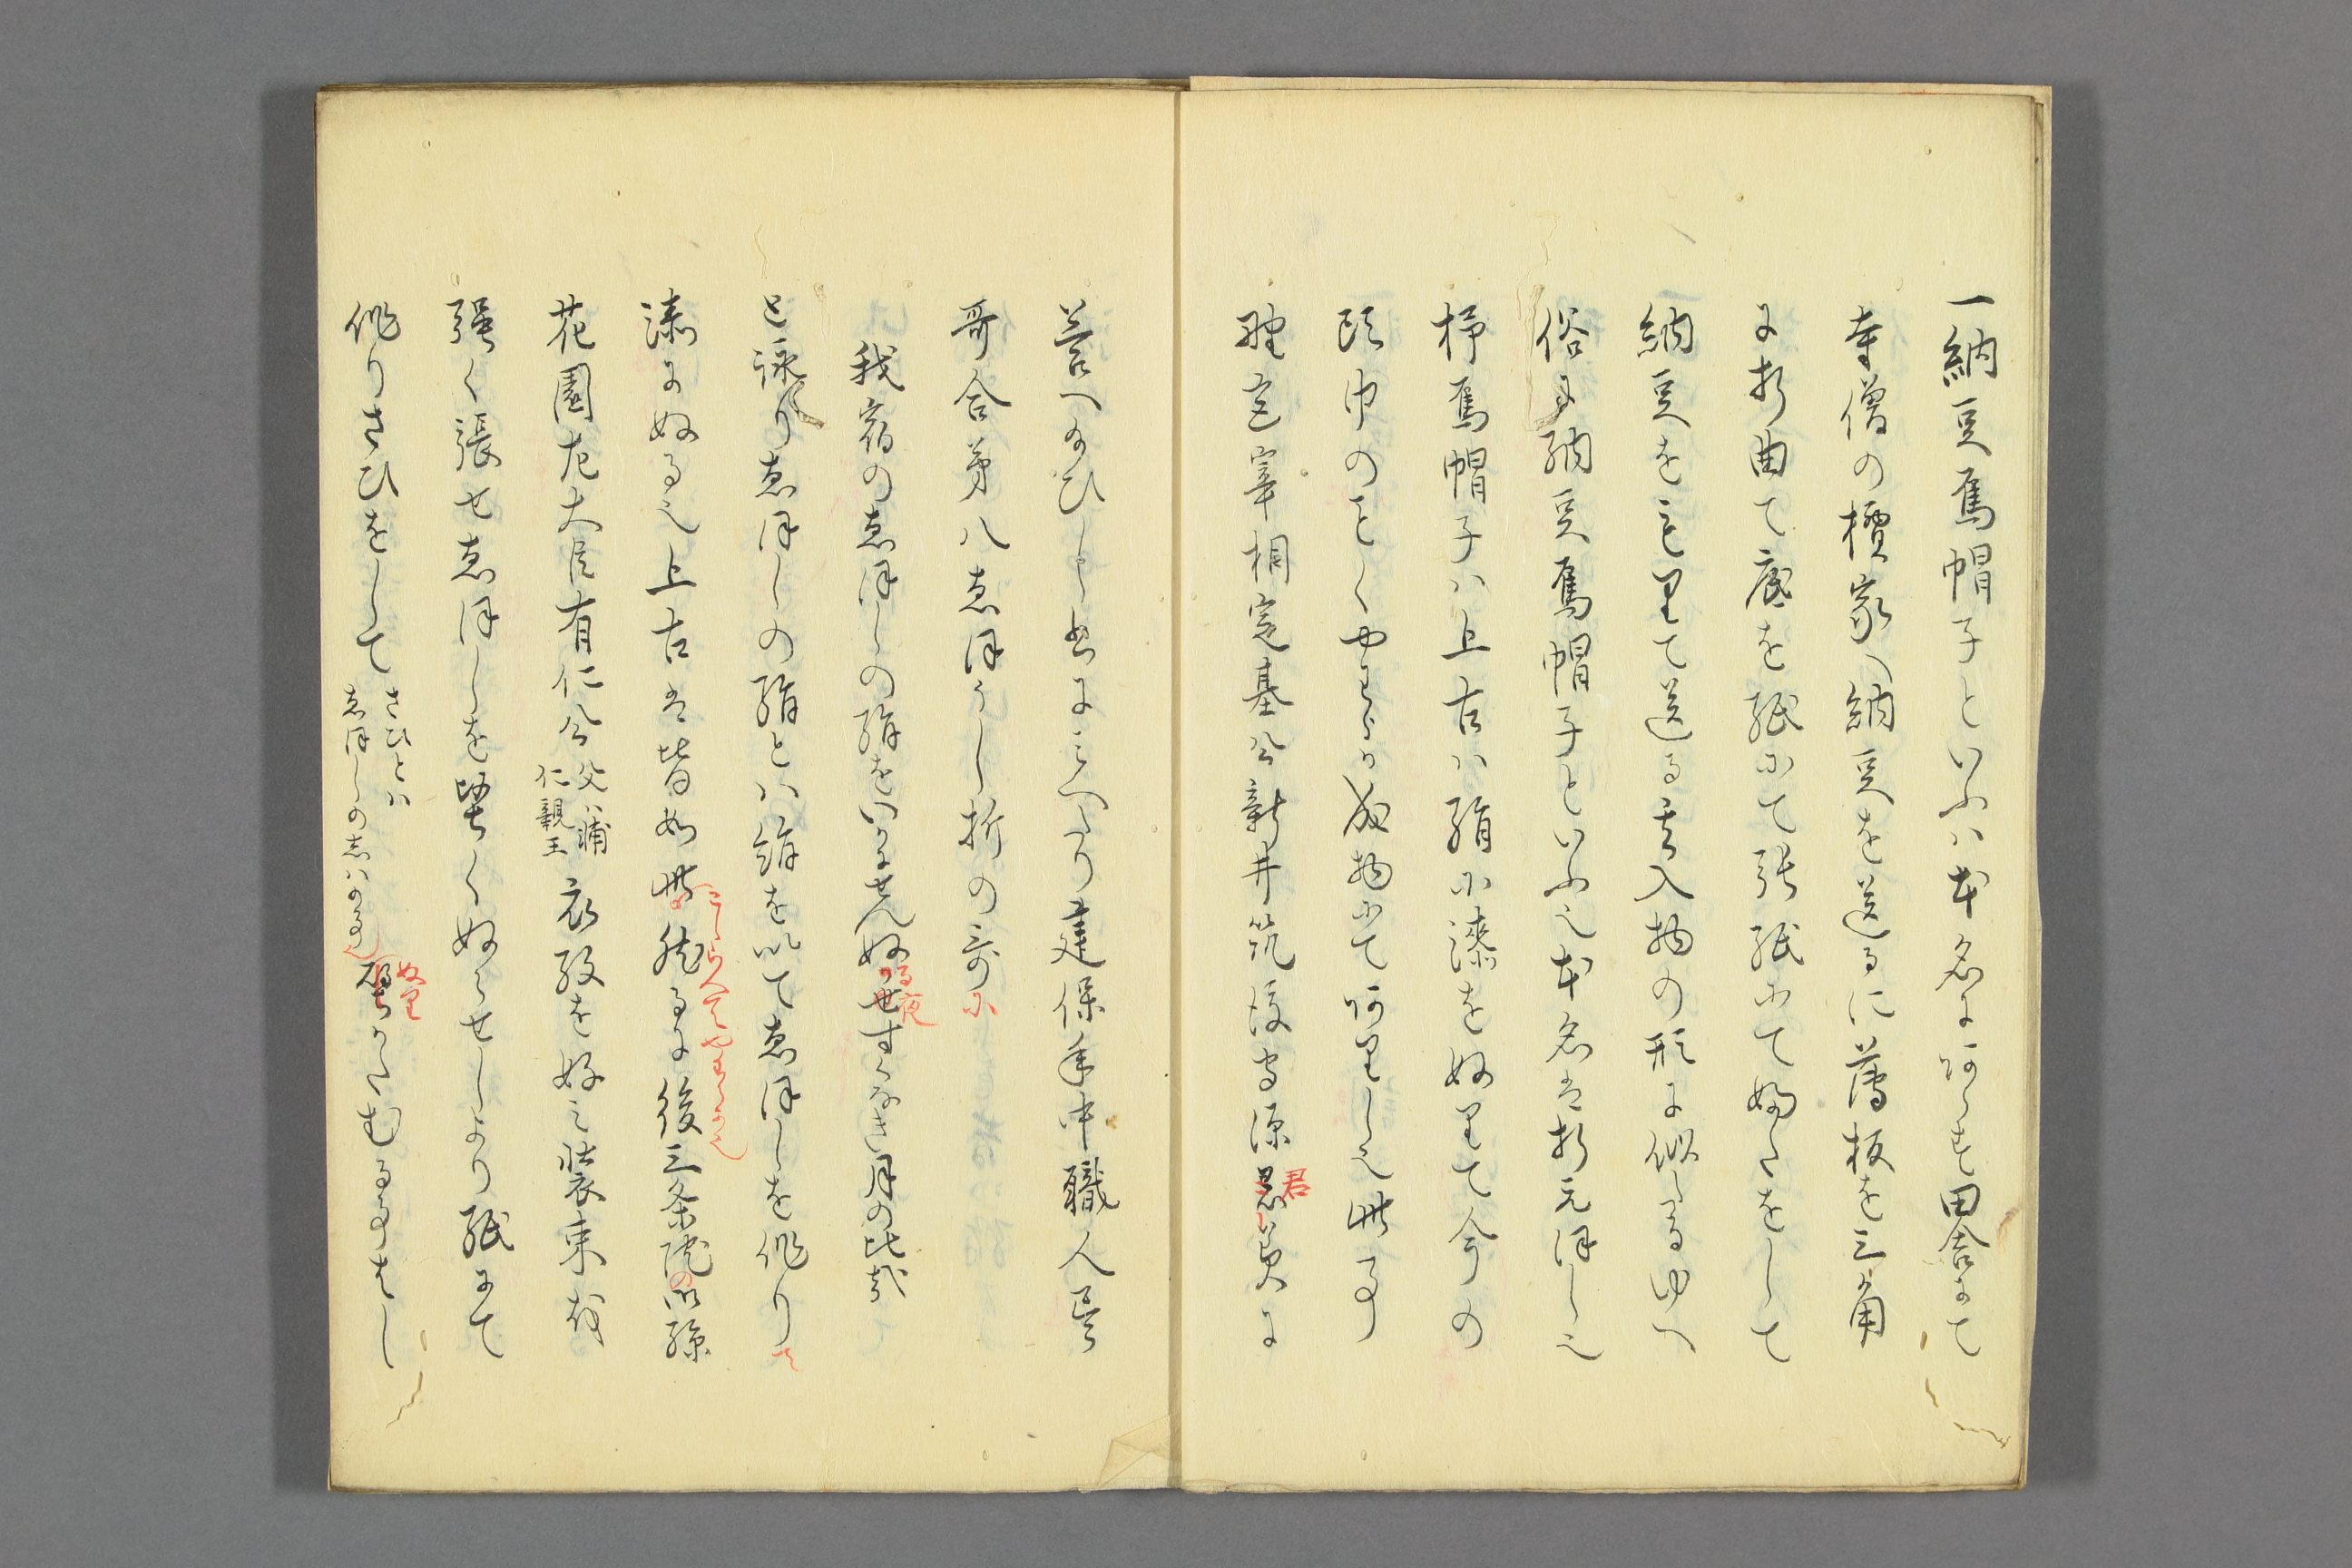 一納豆烏帽子といふハ本名にあらす田舎にて
寺僧の檀家へ納豆を送るに薄板を三角
に折曲て底を紙にて張紙にて婦たをして
納豆をもりて送る其入物の形に似たるゆへ
俗に納豆烏帽子といふ也本名は折えほし也
抑烏帽子ハ上古ハ絹に漆をぬりて今の
頭巾のことくやはらか成物にてありし也此事
野宮宰相定基公新井筑後守源君美に
答へ給ひし書にみへたり建保年中職人尽
哥合第八ゑほうし折の哥に
我宿のゑほしの絹をいかにせんぬる夜すくなき月の比哉
と詠りゑほしの絹とハ絹を以てゑほしを作りて
漆にぬる也上古は皆如此こしらへてやわらか也然るに後三条院の御孫
花園左大臣有仁公父ハ輔仁親王衣紋を好み装束を
強く張せゑほしを堅くぬらせしより紙にて
作りさひをしてさひとハゑほしのしはの事也ぬりかたむる事はし